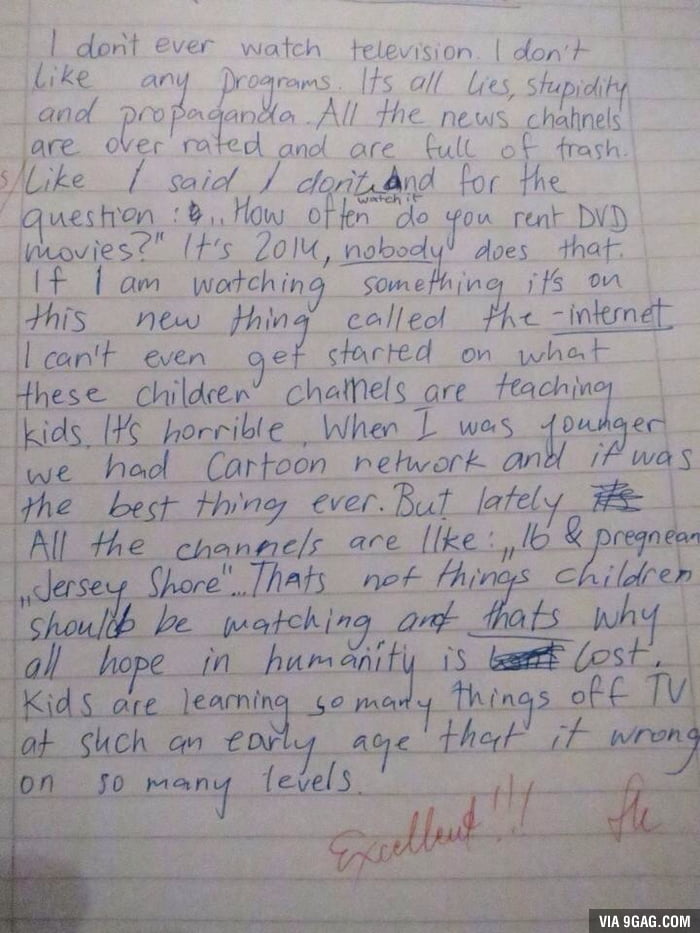 I don't ever watch television. I don't
like any programs. Its all lies, stupidity
and propaganda. All the news channels
are over rated and are full of trash.
Like I said I don't watch it And for the
question : „How often do you rent DVD
movies?" It's 2014, nobody does that.
If I am watching something it's on
this new thing called the -internet
I can't even get started on what
these children channels are teaching
kids. It's horrible. When I was younger
we had Cartoon network and it was
the best thing ever. But lately
All the channels are like: „16 & pregnean
„Jersey Shore"... Thats not things children
should be watching and thats why
all hope in humanity is lost.
Kids are learning so many things off TV
at such an early age that it wrong
on so many levels.
Excellent!!!
VIA 9GAG.COM